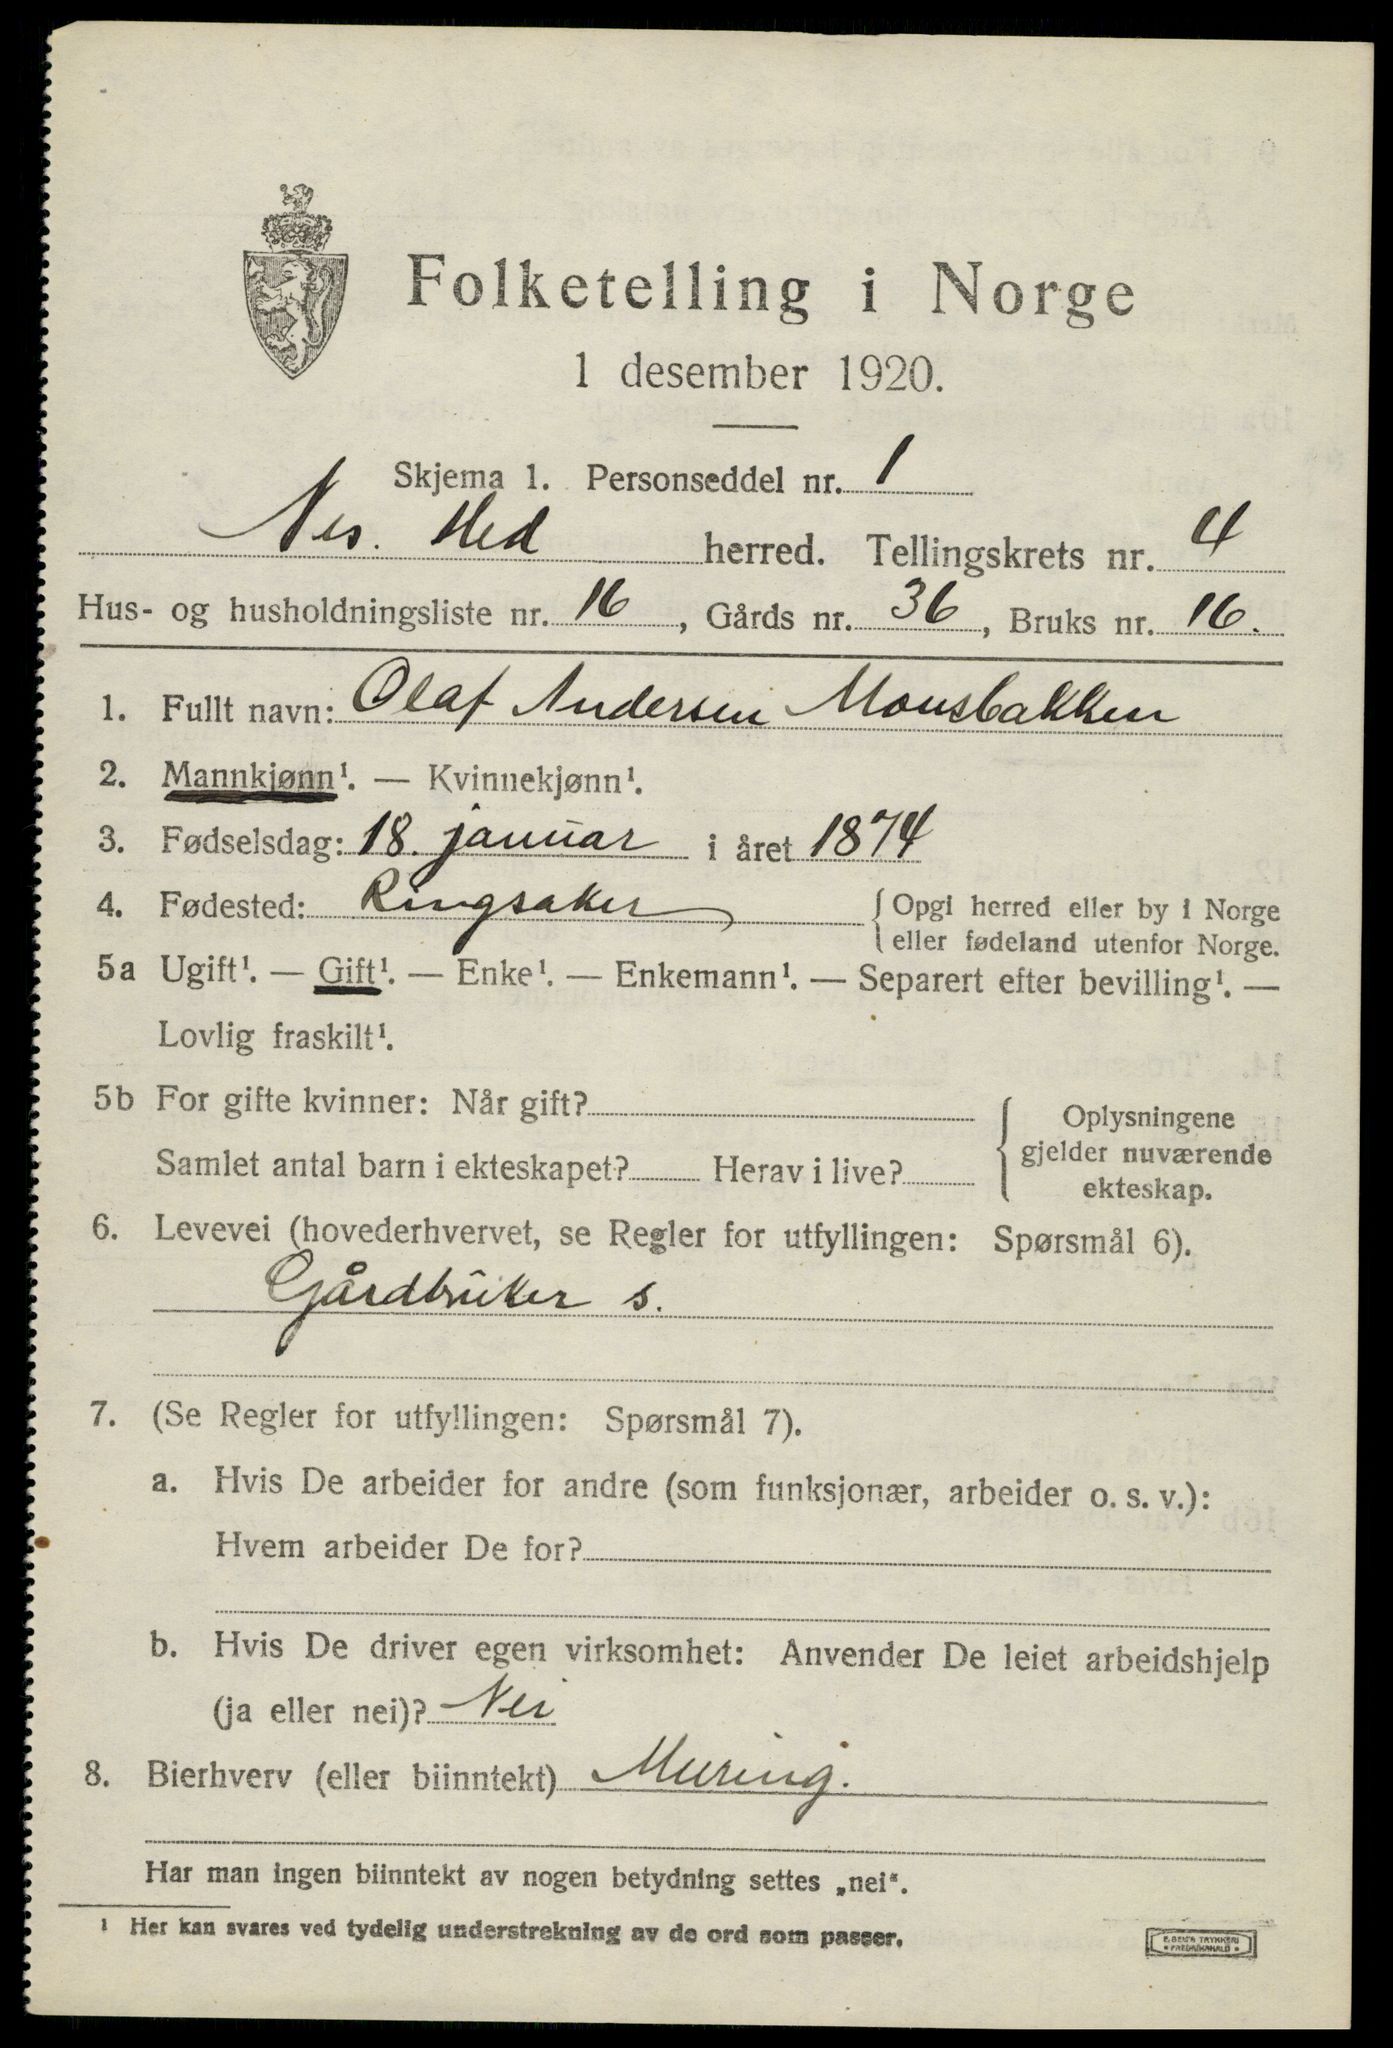 Folketelling i Norge
1 desember 1920.
Skjema 1. Personseddel nr. 1
Nes. Hed herred. Tellingskrets nr. 4
Hus- og husholdningsliste nr. 16, Gårds nr. 36, Bruks nr. 16.
1. Fullt navn: Olaf Andersen Monsbakken
2. Mannkjønn¹. — Kvinnekjønn¹.
3. Fødselsdag: 18. januar i året 1874
4. Fødested: Ringsaker { Opgi herred eller by i Norge
eller fødeland utenfor Norge.
5a Ugift¹. — Gift¹. — Enke¹. — Enkemann¹. — Separert efter bevilling¹. —
Lovlig fraskilt¹.
5b For gifte kvinner: Når gift?
Samlet antal barn i ekteskapet? Herav i live?
{ Oplysningene
gjelder nuværende
ekteskap.
6. Levevei (hovederhvervet, se Regler for utfyllingen: Spørsmål 6).
Gårdbruker s.
7. (Se Regler for utfyllingen: Spørsmål 7).
a. Hvis De arbeider for andre (som funksjonær, arbeider o. s. v.):
Hvem arbeider De for?
b. Hvis De driver egen virksomhet: Anvender De leiet arbeidshjelp
(ja eller nei)? Nei
8. Bierhverv (eller biinntekt) Muring.
Har man ingen biinntekt av nogen betydning settes „nei“.
¹ Her kan svares ved tydelig understrekning av de ord som passer.
E. SEM'S TRYKKERI
• FREDRIKSHALD •